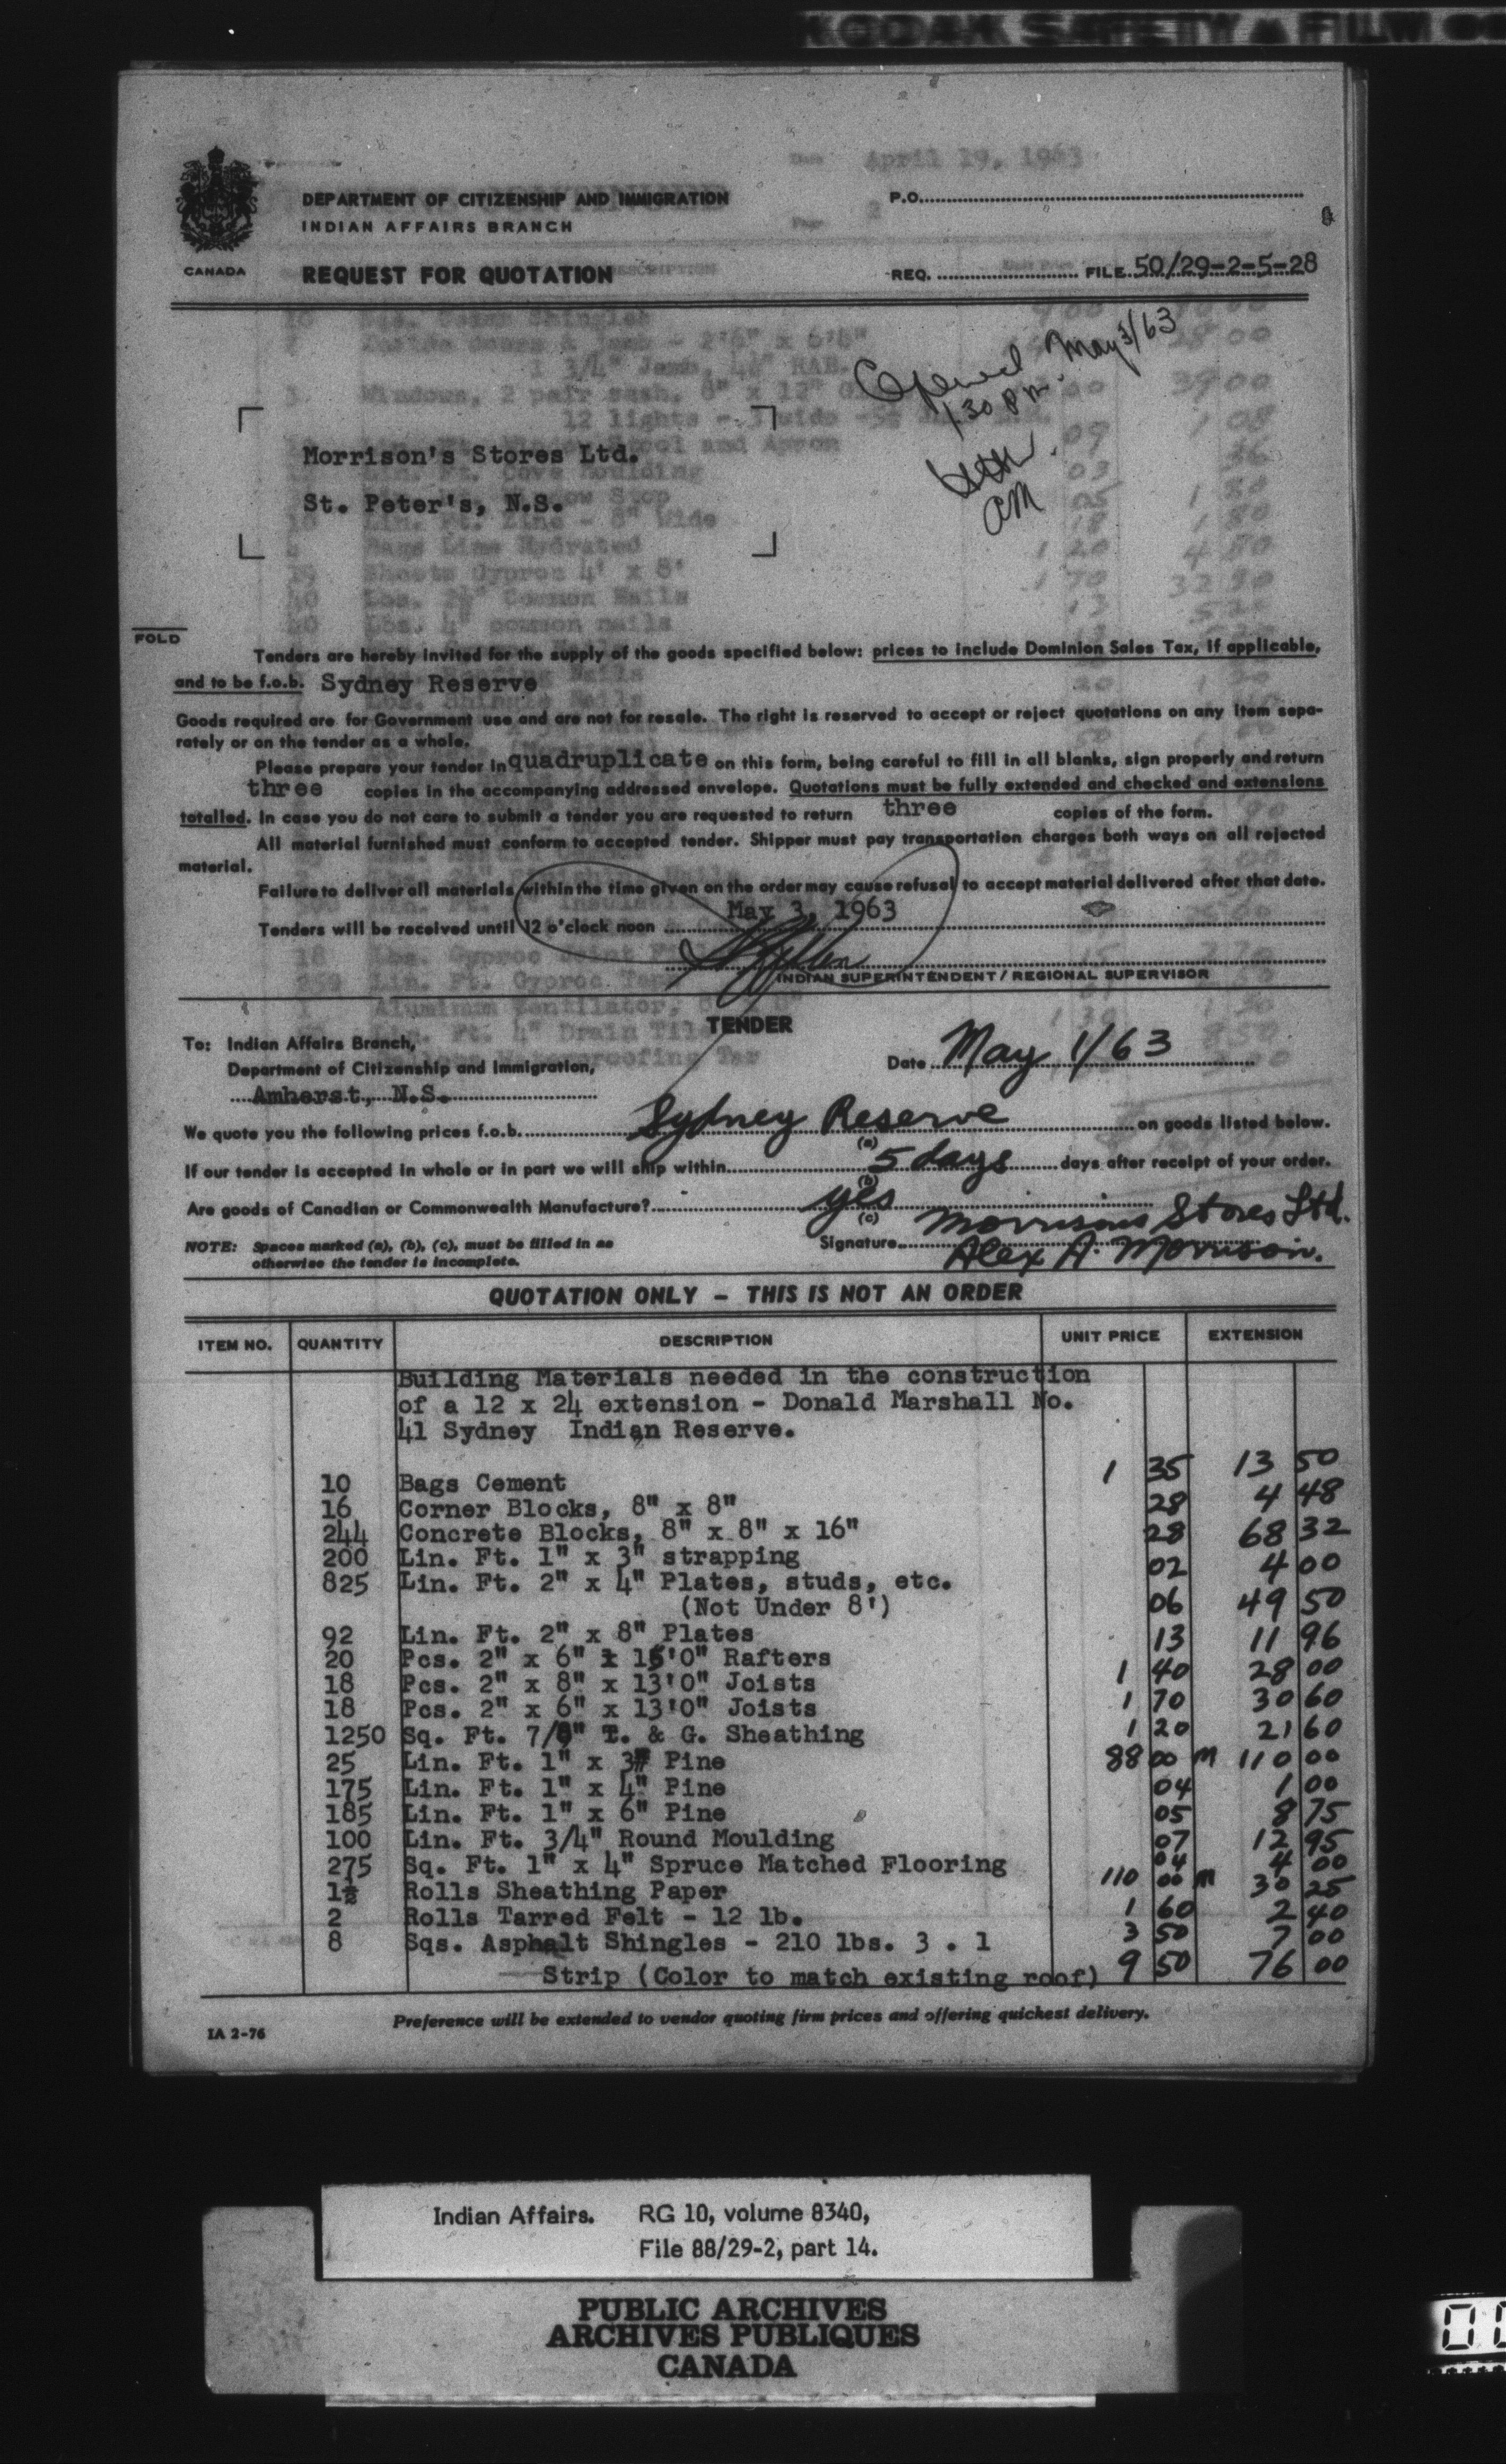 KODAK SAFETY FILM
April 19, 1963
DEPARTMENT OF CITIZENSHIP AND IMMIGRATION
P.O.
INDIAN AFFAIRS BRANCH
CANADA
REQUEST FOR QUOTATION
REQ. FILE 50/29-2-5-28
Opened May 3/63
1.30 P.m.
AM
Morrison's Stores Ltd.
St. Peter's, N.S.
FOLD
Tenders are hereby invited for the supply of the goods specified below: prices to include Dominion Sales Tax, if applicable,
and to be f.o.b. Sydney Reserve
Goods required are for Government use and are not for resale. The right is reserved to accept or reject quotations on any item sepa-
rately or on the tender as a whole.
Please prepare your tender in quadruplicate on this form, being careful to fill in all blanks, sign properly and return
three copies in the accompanying addressed envelope. Quotations must be fully extended and checked and extensions
totalled. In case you do not care to submit a tender you are requested to return three copies of the form.
All material furnished must conform to accepted tender. Shipper must pay transportation charges both ways on all rejected
material.
Failure to deliver all materials within the time given on the order may cause refusal to accept material delivered after that date.
Tenders will be received until 12 o'clock noon May 3, 1963
INDIAN SUPERINTENDENT/REGIONAL SUPERVISOR
TENDER
To: Indian Affairs Branch,
Department of Citizenship and Immigration,
Amherst, N.S.
Date May 1/63
We quote you the following prices f.o.b. Sydney Reserve on goods listed below.
(a)
If our tender is accepted in whole or in part we will ship within 5 days days after receipt of your order.
(b)
Are goods of Canadian or Commonwealth Manufacture? yes
(c)
NOTE: Spaces marked (a), (b), (c), must be filled in as
otherwise the tender is incomplete.
Signature Morrisons Stores Ltd.
Alex A. Morrison.
QUOTATION ONLY – THIS IS NOT AN ORDER
ITEM NO. QUANTITY DESCRIPTION UNIT PRICE EXTENSION
Building Materials needed in the construction
of a 12 x 24 extension - Donald Marshall No.
41 Sydney Indian Reserve.
10 Bags Cement 1 35 13 50
16 Corner Blocks, 8" x 8" 28 4 48
244 Concrete Blocks, 8" x 8" x 16" 28 68 32
200 Lin. Ft. 1" x 3" strapping 02 4 00
825 Lin. Ft. 2" x 4" Plates, studs, etc.
(Not Under 8') 06 49 50
92 Lin. Ft. 2" x 8" Plates 13 11 96
20 Pcs. 2" x 6" x 15'0" Rafters 1 40 28 00
18 Pcs. 2" x 8" x 13'0" Joists 1 70 30 60
18 Pcs. 2" x 6" x 13'0" Joists 1 20 21 60
1250 Sq. Ft. 7/8" T. & G. Sheathing 88 00 m 110 00
25 Lin. Ft. 1" x 3" Pine 04 1 00
175 Lin. Ft. 1" x 4" Pine 05 8 75
185 Lin. Ft. 1" x 6" Pine 07 12 95
100 Lin. Ft. 3/4" Round Moulding 04 4 00
275 Sq. Ft. 1" x 4" Spruce Matched Flooring 110 00 m 30 25
1½ Rolls Sheathing Paper 1 60 2 40
2 Rolls Tarred Felt - 12 lb. 3 50 7 00
8 Sqs. Asphalt Shingles - 210 lbs. 3 . 1
Strip (Color to match existing roof) 9 50 76 00
IA 2-76
Preference will be extended to vendor quoting firm prices and offering quickest delivery.
Indian Affairs. RG 10, volume 8340,
File 88/29-2, part 14.
PUBLIC ARCHIVES
ARCHIVES PUBLIQUES
CANADA